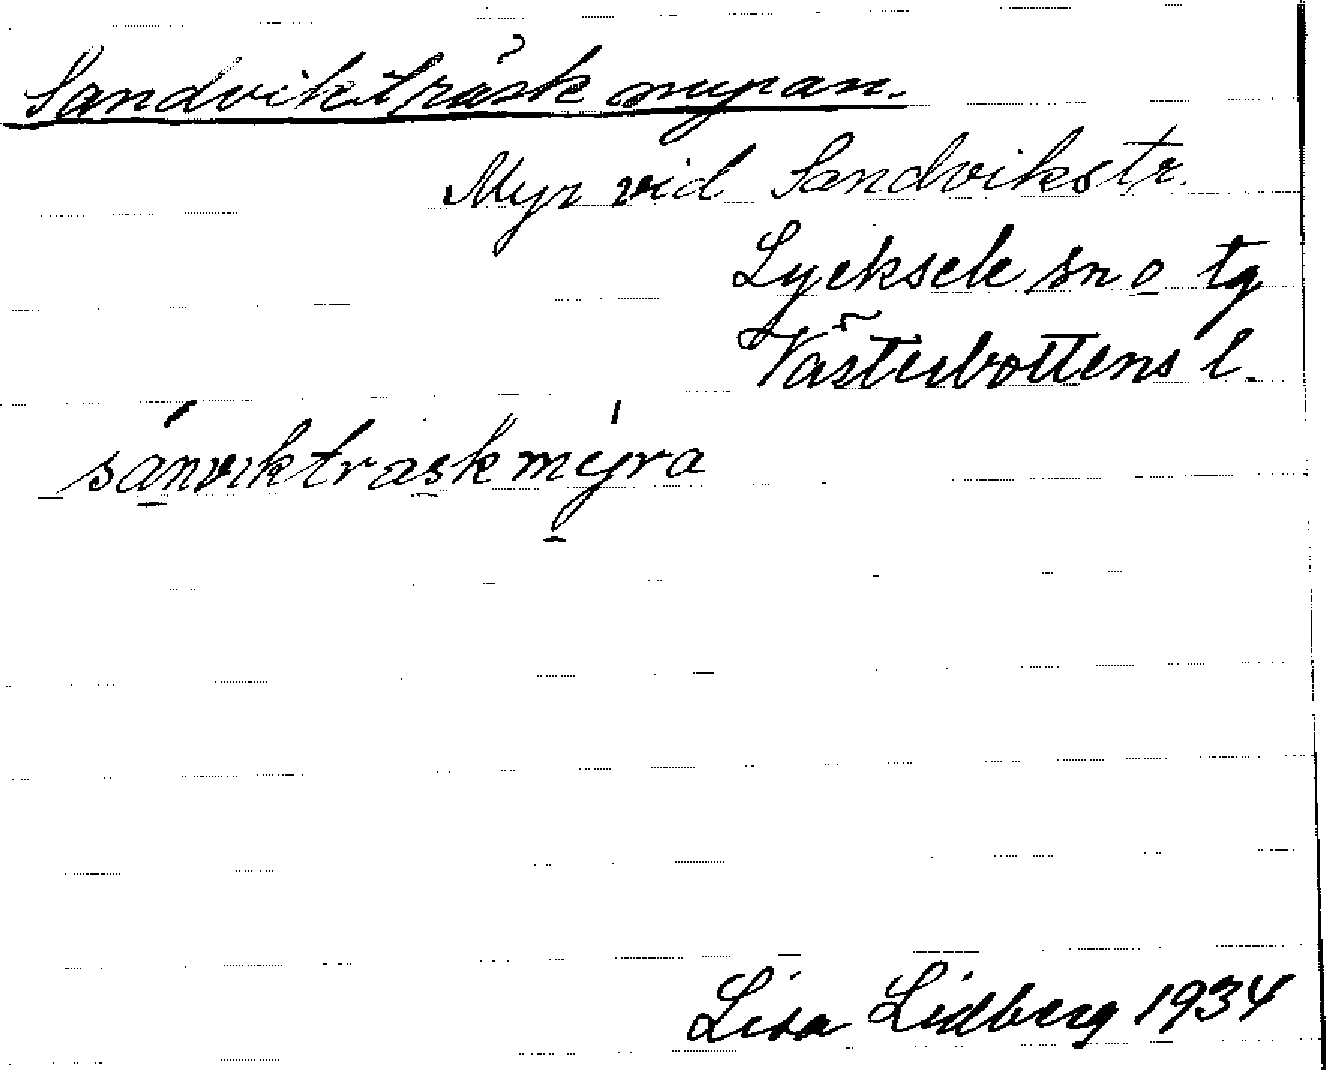 Sandvikträskmyran.
Myr vid Sandvikstr.
Lycksele sn o tg
Västerbottens l.
sánviktraskmýra
Lisa Lidberg 1934